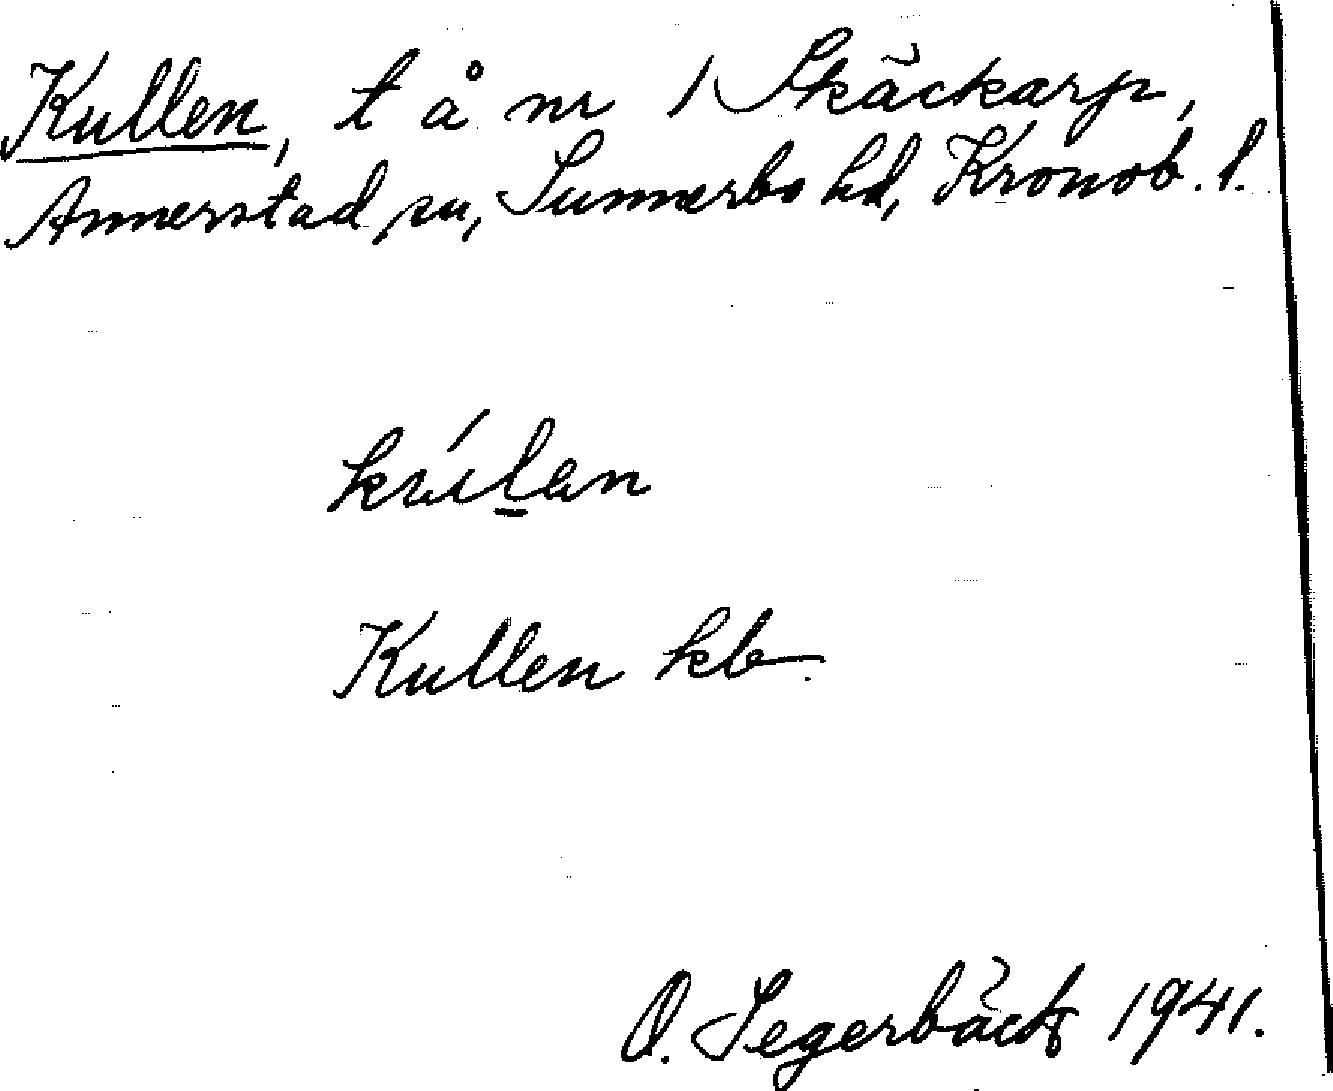 Kullen, t å nr 1 Skäckarp,
Annerstad sn, Sunnerbo hd, Kronob. l.
kúl̲en
Kullen kb.
O. Segerbäck 1941.